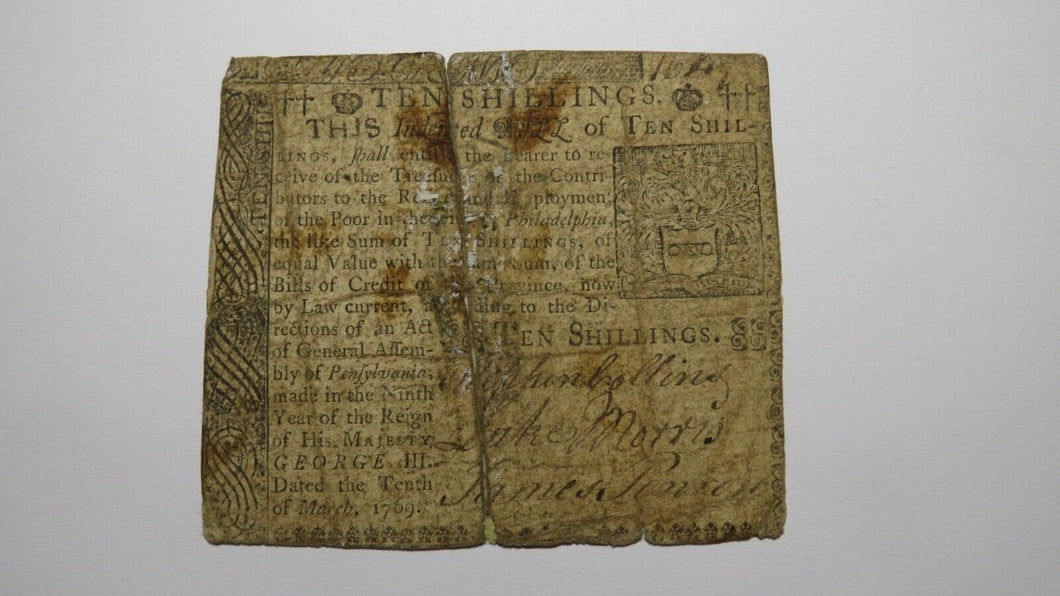 TEN SHILLINGS.
THIS Indented BILL of TEN SHIL-
LINGS, ſhall entitle the Bearer to re-
ceive of the Treaſurer of the Contri-
butors to the Relief and Employment
of the Poor in the City of Philadelphia,
the like Sum of TEN SHILLINGS, of
equal Value with the ſame Sum, of the
Bills of Credit of this Province, now
by Law current, according to the Di-
rections of an Act
of General Aſſem-
bly of Penſylvania;
made in the Ninth
Year of the Reign
of His MAJESTY
GEORGE III.
Dated the Tenth
of March, 1769.
TEN SHILLINGS.
Collins
Luke Morris
James
TEN SHILL